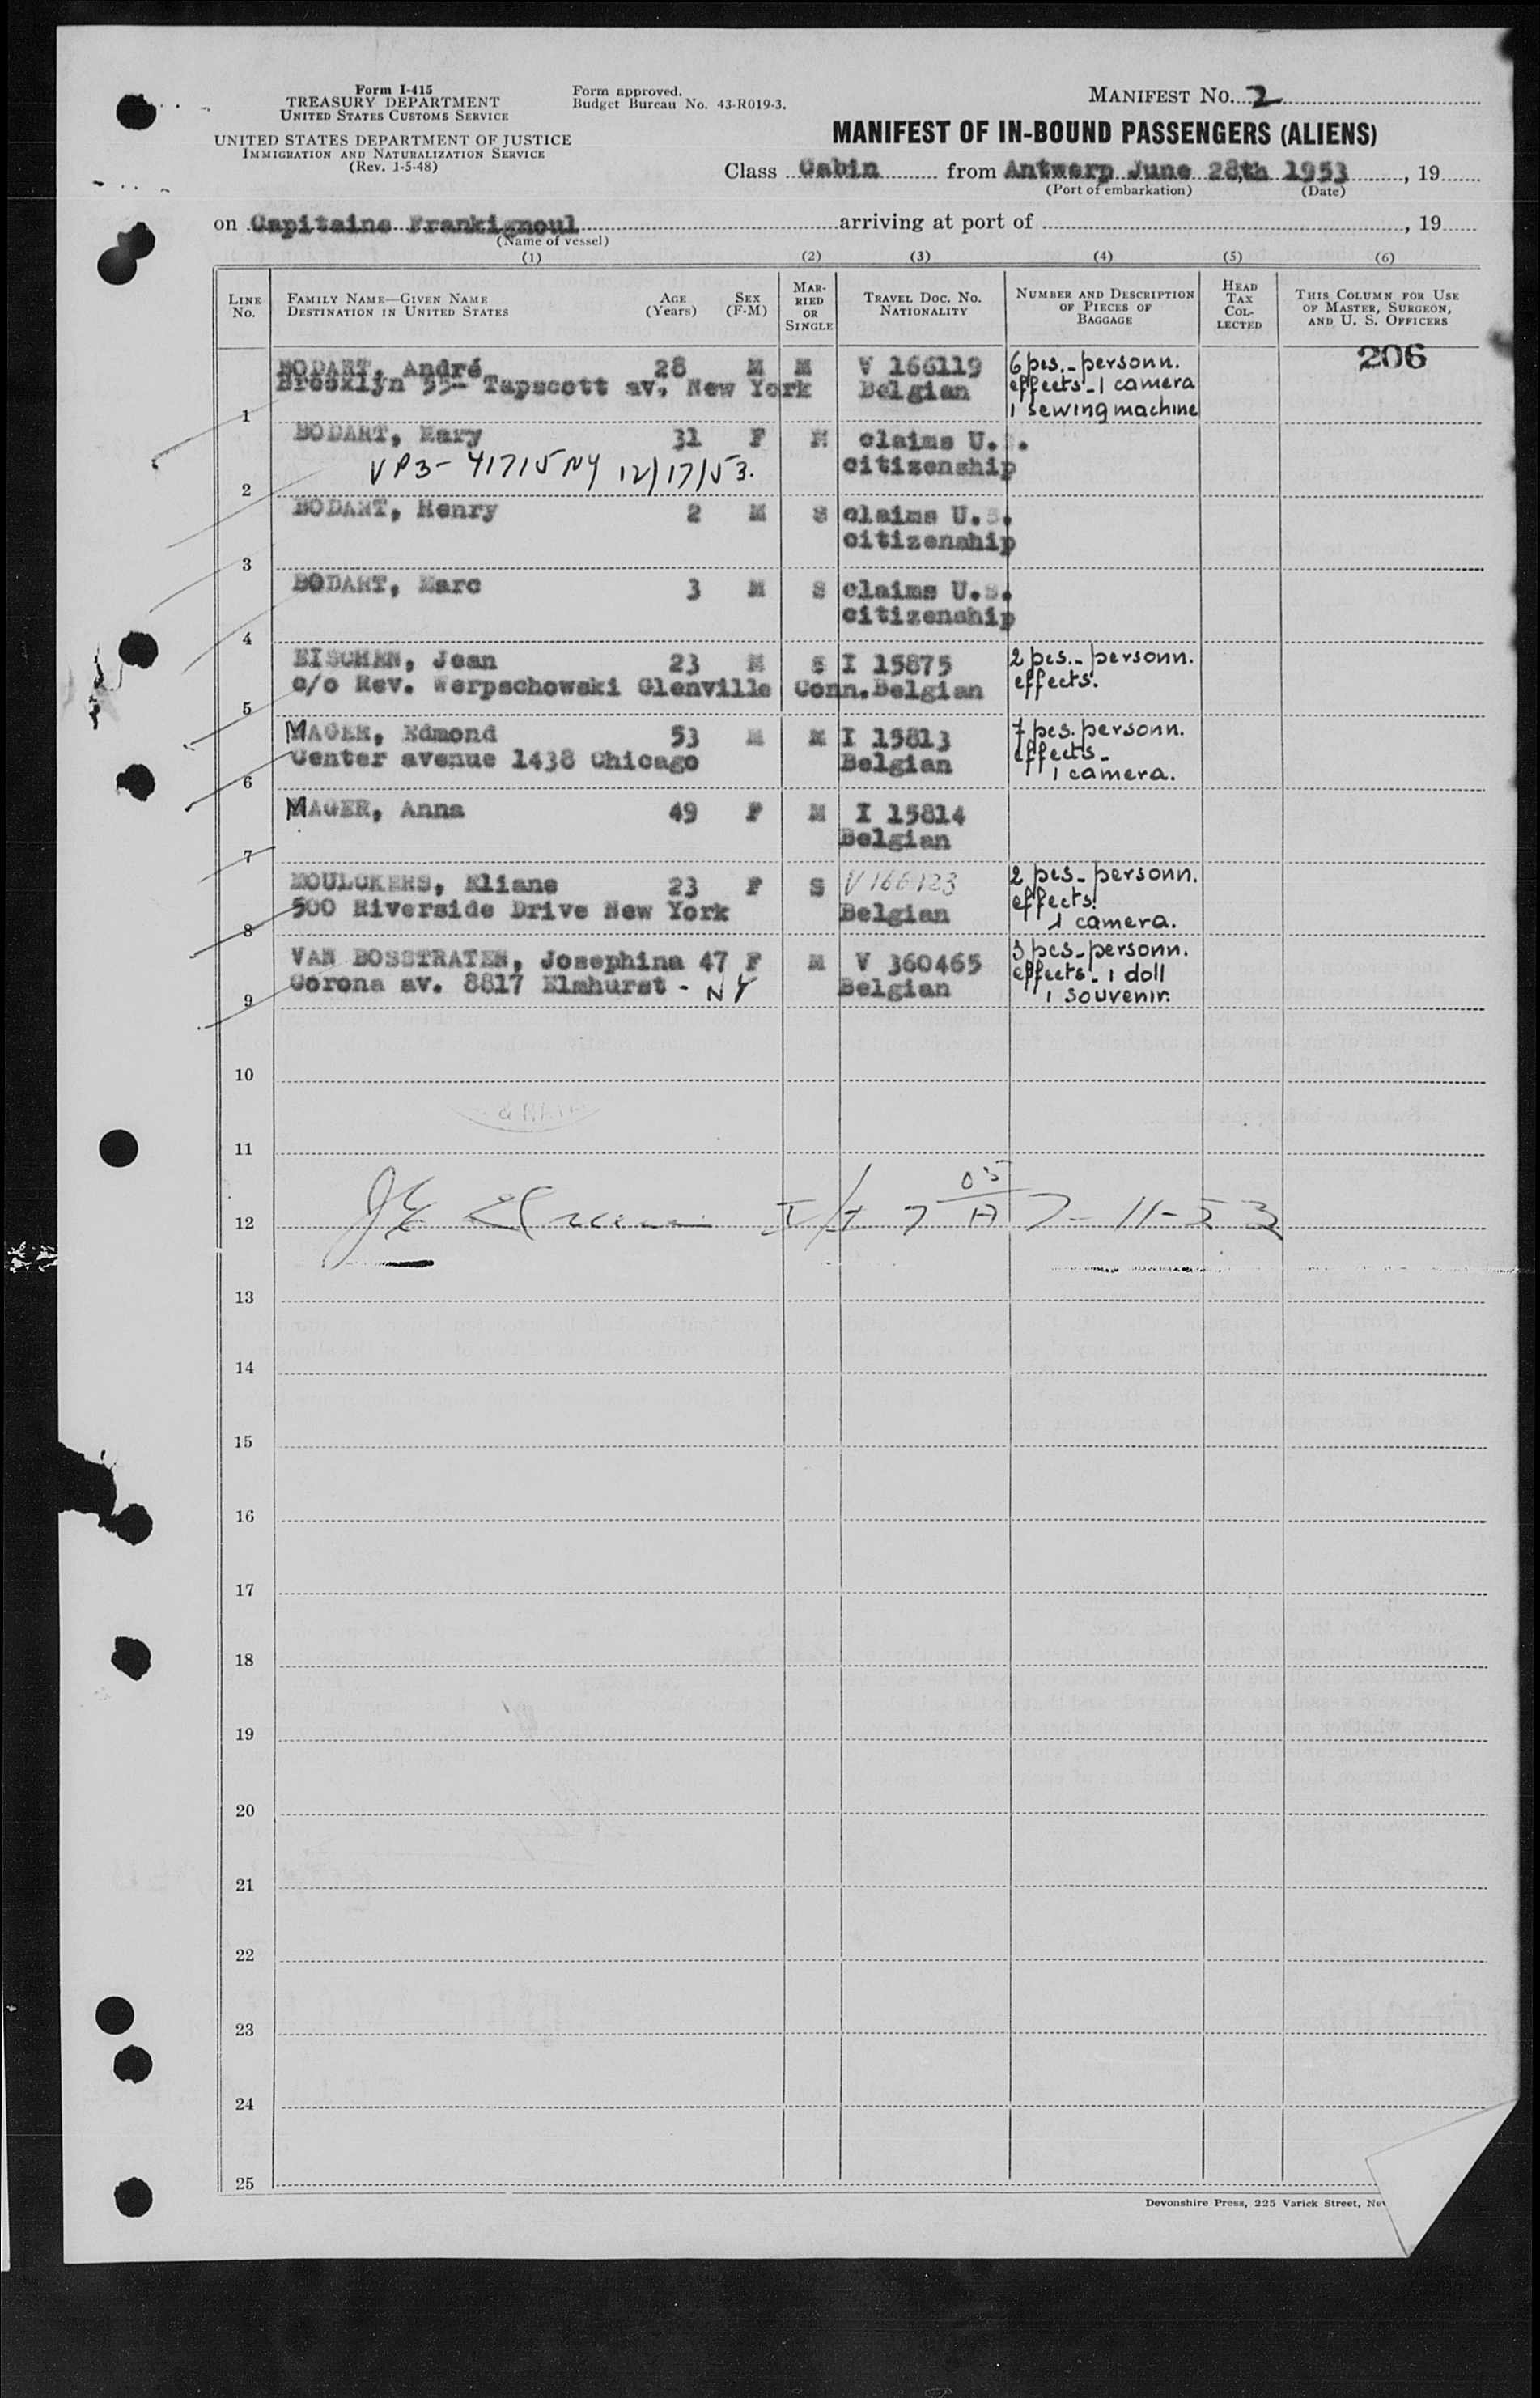 Form I-415
TREASURY DEPARTMENT
UNITED STATES CUSTOMS SERVICE
UNITED STATES DEPARTMENT OF JUSTICE
IMMIGRATION AND NATURALIZATION SERVICE
(Rev. 1-5-48)
Form approved.
Budget Bureau No. 43-R019-3.
MANIFEST NO. 2
MANIFEST OF IN-BOUND PASSENGERS (ALIENS)
Class Cabin from Antwerp June 28th 1953, 19
(Port of embarkation) (Date)
on Capitaine Frankignoul arriving at port of , 19
(Name of vessel)
(1) (2) (3) (4) (5) (6)
LINE NO.
FAMILY NAME—GIVEN NAME
DESTINATION IN UNITED STATES
AGE (Years)
SEX (F-M)
MARRIED OR SINGLE
TRAVEL DOC. NO. NATIONALITY
NUMBER AND DESCRIPTION OF PIECES OF BAGGAGE
HEAD TAX COLLECTED
THIS COLUMN FOR USE OF MASTER, SURGEON, AND U. S. OFFICERS
206
BODART, André 28 M M V 166119 6 pcs. - personn.
Brooklyn 55- Tapscott av. New York Belgian effects - 1 camera
1 1 sewing machine
BODART, Mary 31 F M claims U.S.
VP3- 41715 NY 12/17/53. citizenship
2
BODART, Henry 2 M S claims U.S.
citizenship
3
BODART, Marc 3 M S claims U.S.
citizenship
4
EISCHEN, Jean 23 M S I 15875 2 pcs. - personn.
c/o Rev. Werpschowski Glenville Conn. Belgian effects.
5
MAGER, Edmond 53 M M I 15813 7 pcs. personn.
Center avenue 1438 Chicago Belgian effects -
6 1 camera.
MAGER, Anna 49 F M I 15814
Belgian
7
MOULCKERS, Eliane 23 F S V 166123 2 pcs - personn.
500 Riverside Drive New York Belgian effects.
8 1 camera.
VAN BOSSTRATEN, Josephina 47 F M V 360465 3 pcs - personn.
Corona av. 8817 Elmhurst - NY Belgian effects - 1 doll
9 1 souvenir.
10
11
12 7-11-53
13
14
15
16
17
18
19
20
21
22
23
24
25
Devonshire Press, 225 Varick Street,